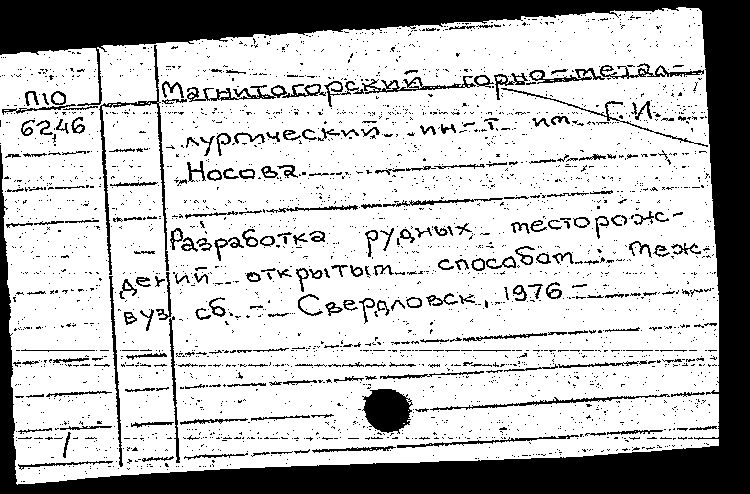 П10
6246
Магнитогорский горно-метал-
лургический ин-т им. Г.И.
Носова.
Разработка рудных месторож-
дений открытым способом : Меж-
вуз. сб. - Свердловск, 1976 -
1